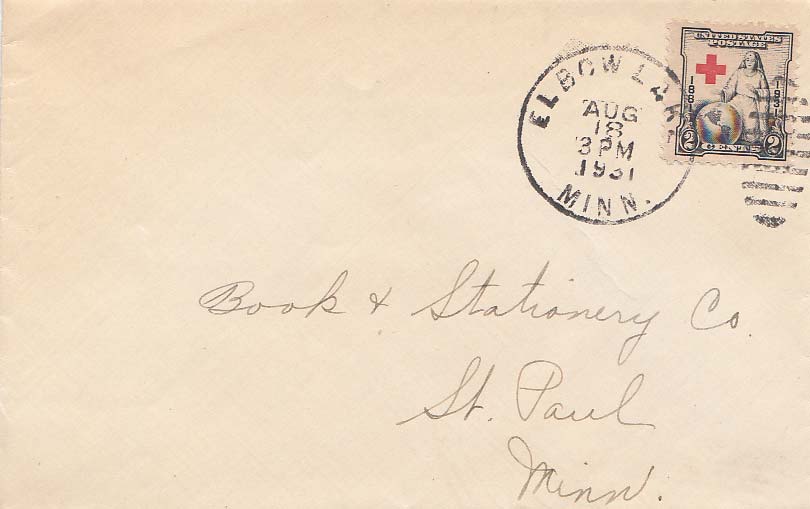 UNITED STATES
POSTAGE
1881 1931
2 CENTS 2
ELBOW LAKE
AUG
18
3 PM
1931
MINN.
Book & Stationery Co.
St. Paul
Minn.